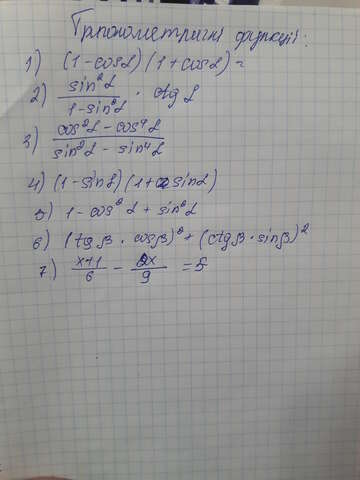 Тригонометричні функції:
1) (1-cosα)(1+cosα)=
2) sin²α / 1-sin²α · ctg α
3) cos²α - cos⁴α / sin²α - sin⁴α
4) (1-sinα)(1+sinα)
5) 1-cos²α + sin²α
6) (tgβ · cosβ)² + (ctgβ · sinβ)²
7) x+1 / 6 - x / 9 = 5